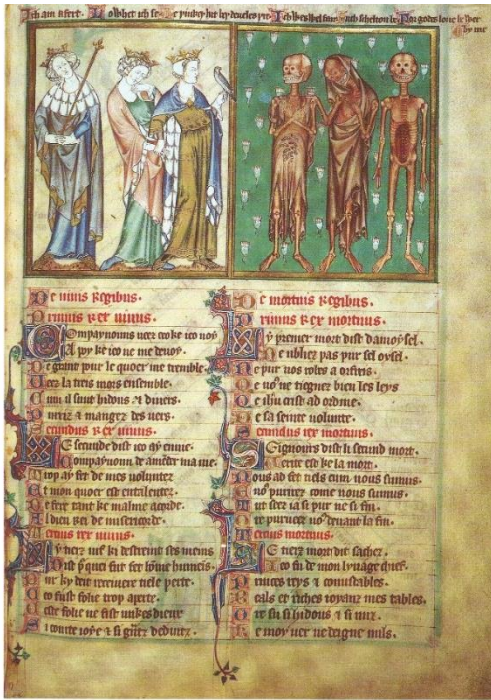 Ich am afert. Lo whet ich se Me þinkeþ hit bey deueles þre. Ich wes wel fair. Such schel tou be. For godes loue be wer
by me
De uiuis regibus.
Primus rex uiuus.
Compaynouns ueez ceo ke ieo uoy
A poy ke ieo ne me deuoy.
De grant pour le quoer me tremble.
Ueez la treis mors ensemble.
Cum il sunt hidus & diuers.
Purriz & mangez des uers.
Secundus rex uiuus.
Le secunde dist ieo ay enuie.
Compaynoun de amender ma uie.
Trop ay fet de mes volunter
Et mon quoer est entalenter.
De fere tant ke malme acorde.
Al dieu rei de misericorde.
Tercius rex uiuus.
Ly tierz uif ki destreint ses meins
Dist quei fut fet home humeins.
Pur ke deit receiure tiele perte.
Ceo fust folie trop aperte.
Ceste folie ne fist unkes dieux
Si courte ioye & si deduitz.
De mortuis regibus.
Primus rex mortuus.
Ly premer mort dist damoysel.
Ne ubliez pas pur sel oysel.
Ne pur vos robes a orfreis.
Qe uo9 ne tiegnez bien les leys
Qe ihu crist ad ordine.
De sa seinte volunte.
Secundus rex mortuus.
Seignours dist li secund mort.
Uerite est ke la mort.
Nous ad fet tiels cum nous sumus.
Et uo9 purirez come nous sumus.
Tut seez ia si pur ne si fin.
purueez uo9 deuant la fin.
Tercius mortuus.
Le tierz mort dit sachez.
Ieo fu de mon lynage chief.
Princes reys & conustables.
Beals et riches ioyanz mes tables.
Ore su si hidous & si nuz.
Ke moy uer ne deigne nuls.